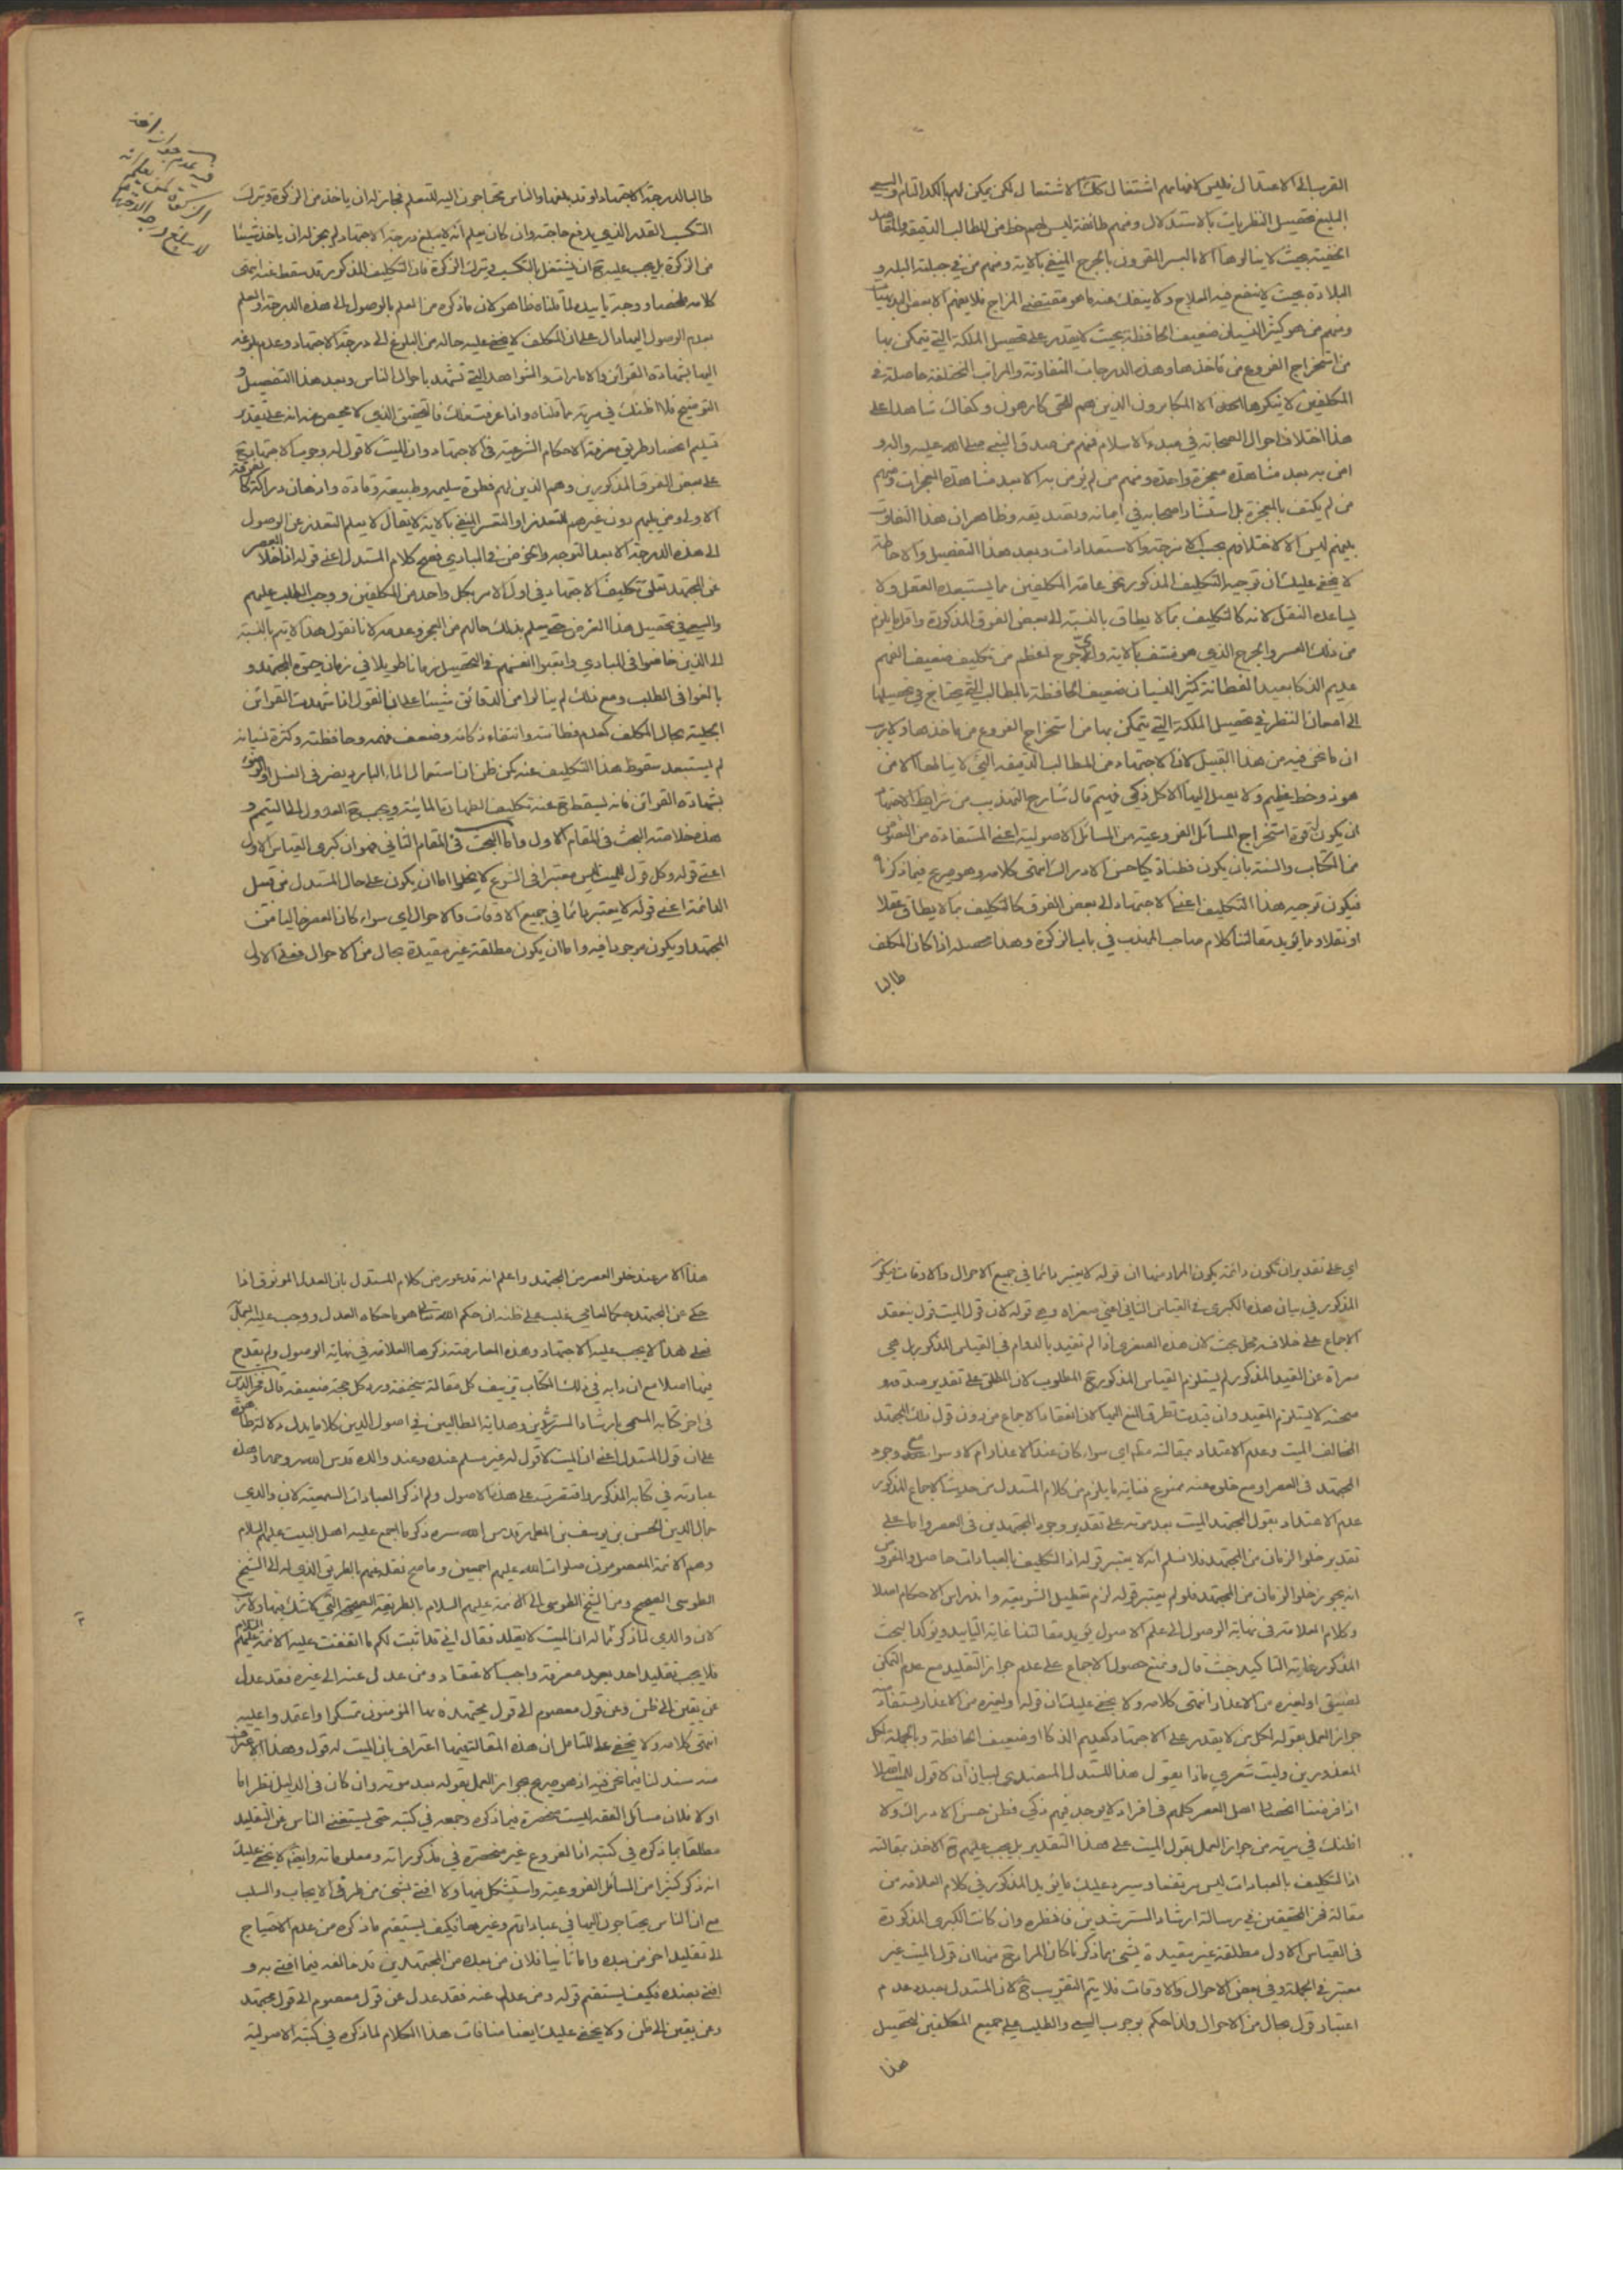 القريب الى الاعتدال فليس لافهامهم اشتغال كذلك الاشتغال لكن يمكن لهم بالكد التام والسعي
البليغ تحصيل النظريات بالاستدلال ومنهم طائفة ليس لهم حظ من المطالب الدقيقة والمقاصد
الخفية بحيث لا ينالوها الا بالعسر المقرون بالحرج المنفي بالاية ومنهم من في جبلته البله و
البلادة بحيث لا ينفع فيه العلاج ولا ينفك عنه ما هو مقتضى المزاج فلا يفهم الا بعض البديهيات
ومنهم من هو كثير النسيان ضعيف الحافظة بحيث لا يقدر على تحصيل الملكة التي يتمكن بها
من استخراج الفروع من مأخذها وهذه الدرجات المتفاوتة والمراتب المختلفة حاصلة في
المكلفين لا ينكرها احد الا المكابرون الذين هم للحق كارهون وكفاك شاهدا على
هذا اختلاف احوال الصحابة في مبدء الاسلام فمنهم من صدق النبي صلى الله عليه واله و
امن به بعد مشاهدة معجزة واحدة ومنهم من لم يؤمن به الا بعد مشاهدة المعجزات ومنهم
من لم يكتف بالمعجزة بل استشار اصحابه في ايمانه وتصديقه وظاهر ان هذا التفاوت
بينهم ليس الا لاختلافهم بحسب الامزجة والاستعدادات وبعد هذا التفصيل والاحاطة
لا يخفى عليك ان توجيه التكليف المذكور نحو عامة المكلفين مما يستبعده العقل ولا
يساعده النقل لانه كالتكليف بما لا يطاق بالنسبة الى بعض الفرق المذكورة واقل ما يلزم
من ذلك العسر والحرج الذي هو منتف بالاية واي حرج اعظم من تكليف ضعيف الفهم
عديم الذكا بعيد الفطانة كثير النسيان ضعيف الحافظة بالمطالب التي يحتاج في تحصيلها
الى امعان النظر في تحصيل الملكة التي يتمكن بها من استخراج الفروع من مأخذها ولا ريب
ان ما نحن فيه من هذا القبيل لان الاجتهاد من المطالب الدقيقة التي لا ينالها الا من
هو ذو حظ عظيم ولا يصل اليها الا كل ذكي فهيم قال شارح التهذيب من شرايط الاجتهاد
ان يكون له قوة استخراج المسائل الفروعية من المسائل الاصولية اعني المستفادة من النصوص
من الكتاب والسنة بان يكون فطنا ذكيا حسن الادراك انتهى كلامه وهو صريح فيما ذكرنا
فيكون توجيه هذا التكليف اعني الاجتهاد الى بعض الفرق كالتكليف بما لا يطاق عقلا
او نقلا ومما يؤيد مقالتنا كلام صاحب المهذب في باب الزكوة وهذا محصله اذا كان المكلف
طالبا
طالبا لدرجة الاجتهاد او قد بلغها والناس محتاجون اليه للتعلم فجاز له ان ياخذ من الزكوة وترك
التكسب القدر الذي يدفع حاجته وان كان يعلم انه لا يبلغ درجة الاجتهاد لم يجز له ان ياخذ شيئا
من الزكوة بل يجب عليه ح ان يشتغل بالتكسب ويترك الزكوة فان التكليف المذكور قد سقط عنه انتهى
كلامه ملخصا ووجه تأييده لما قلناه ظاهر لان ما ذكره من العلم بالوصول الى هذه الدرجة والعلم
بعدم الوصول اليها دال على ان المكلف لا يخفى عليه حاله من البلوغ الى درجة الاجتهاد وعدم بلوغه
اليها بشهادة القرائن والامارات والشواهد التي تشهد باحوال الناس وبعد هذا التفصيل و
التوضيح فلا اظنك في مرية مما قلناه واذا عرفت ذلك فالتحقيق الذي لا محيص عنه انه على تقدير
تسليم انحصار طريق معرفة الاحكام الشرعية في الاجتهاد وان الميت لا قول له وجوب الاجتهاد ح
على بعض الفرق المذكورين وهم الذين لهم فطرة سليمة وطبيعة وقادة واذهان دراكة كالفرقة
الاولى ومن يليهم دون غيرهم للتعذر او التعسر المنفي بالاية لا يقال لا يعلم التعذر عن الوصول
الى هذه الدرجة الا بعد التوجه والخوض في المبادي فصح كلام المستدل اعني قوله اذا خلا العصر
عن المجتهد تعلق تكليف الاجتهاد في اول الامر بكل واحد من المكلفين ووجب الطلب عليهم
والسعي في تحصيل هذا الغرض حتى يعلم بذلك حالهم من العجز وعدمه لانا نقول هذا لا يتم بالنسبة
الى الذين خاضوا في المبادي واتعبوا انفسهم في التحصيل زمانا طويلا في زمان حيوة المجتهد و
بالغوا في الطلب ومع ذلك لم ينالوا من الدقائق شيئا على انا نقول اذا شهدت القرائن
الجلية بحال المكلف كعدم فطانته وانتفاء ذكائه وضعف فهمه وحافظته وكثرة نسيانه
لم يستبعد سقوط هذا التكليف عنه كمن ظن ان استعمال الماء البارد يضر في الغسل او الوضوء
بشهادة القرائن فانه يسقط ح عنه تكليف الطهارة المائية ويجب ح العدول الى التيمم و
هذه خلاصة البحث في المقام الاول واما البحث في المقام الثاني فهو ان كبرى القياس الاول
اعني قوله وكل قول للميت ليس معتبرا في الشرع لا يخلوا اما ان يكون على حال المستدل من قبيل
الدائمة اعني قوله لا يعتبر دائما في جميع الاوقات والاحوال اي سواء كان العصر خاليا من
المجتهد او يكون موجودا فيه واما ان يكون مطلقة غير مقيدة بحال من الاحوال فعلى الاول
اي على تقدير ان تكون دائمة يكون المراد منها ان قوله لا يعتبر دائما في جميع الاحوال والاوقات فيكون
المذكور في بيان هذه الكبرى في القياس الثاني اعني صغراه وهي قوله لان قول الميت قول ينعقد
الاجماع على خلافه محل بحث لان هذه الصغرى اذا لم تقيد بالدوام في القياس المذكور بل هي
معراة عن القيد المذكور لم يستلزم القياس المذكور ح المطلوب لان المطلق على تقدير صدقه و
صحته لا يستلزم المقيد وان قيدت تطرق المنع اليها لان انعقاد الاجماع من دون قول ذلك المجتهد
المخالف الميت وعدم الاعتداد بمقالته مطلقا اي سواء كان عند الاعذار ام لا وسواء مع وجود
المجتهد في العصر او مع خلوه عنه ممنوع فغاية ما يلزم من كلام المستدل من حديث الاجماع المذكور
عدم الاعتداد بقول المجتهد الميت بعد موته على تقدير وجود المجتهدين في العصر واما على
تقدير خلو الزمان من المجتهد فلا نسلم انه لا يعتبر قوله اذ التكليف بالعبادات حاصل والمفروض
انه يجوز خلو الزمان من المجتهد فلو لم يعتبر قوله لزم تعطيل الشريعة واندراس الاحكام اصلا
وكلام العلامة في نهاية الوصول الى علم الاصول يؤيد مقالتنا غاية التأييد ويؤكد البحث
المذكور غاية التأكيد حيث قال ونمنع حصول الاجماع على عدم جواز التقليد مع عدم التمكن
لضيق او لغيره من الاعذار انتهى كلامه ولا يخفى عليك ان قوله او لغيره من الاعذار يستفاد منه
جواز العمل بقوله لكل من لا يقدر على الاجتهاد كعديم الذكا او ضعيف الحافظة وبالجملة لكل
المعذورين وليت شعري ماذا يقول هذا المستدل المتصدي لبيان ان لا قول للميت اصلا
اذا فرضنا انحصار اهل العصر كلهم في افراد لا يوجد فيهم ذكي فطن حسن الادراك ولا
اظنك في مرية من جواز العمل بقول الميت على هذا التقدير بل يجب عليهم ح الاخذ بمقالته
اذ التكليف بالعبادات ليس مرتفعا وسيرد عليك ما يؤيد المذكور في كلام العلامة من
مقالة فخر المحققين في رسالة ارشاد المسترشدين فانتظره وان كانت الكبرى المذكورة
في القياس الاول مطلقة غير مقيدة بشئ بما ذكرنا كان المراد ح منها ان قول الميت غير
معتبر في الجملة وفي بعض الاحوال والاوقات فلا يتم التقريب ح لان المستدل بصدد عدم
اعتبار قول بحال من الاحوال ولذا حكم بوجوب السعي والطلب على جميع المكلفين لتحصيل
هذا
هذا الامر عند خلو العصر من المجتهد واعلم انه قد عور من كلام المستدل بان العدل الموثوق اذا
حكى عن المجتهد حكما لعامي غلب على ظنه ان حكم الله تعالى هو ما حكاه العدل ووجب عليه العمل
فعلى هذا لا يجب عليه الاجتهاد وهذه المعارضة ذكرها العلامة في نهاية الوصول ولم يقدح
فيها اصلا مع ان دابه في ذلك الكتاب تزييف كل مقالة سخيفة ورد كل حجة ضعيفة قال فخر الدين
في اخر كتابه المسمى بارشاد المسترشدين وهداية الطالبين في اصول الدين كلاما يدل دلالة ظاهرة
على ان قول المستدل اعني ان الميت لا قول له غير مسلم عنده وعند والده قدس الله روحهما وهذه
عبارته في كتابه المذكور واقتصرت على هذه الاصول ولم اذكر العبادات السمعية لان والدي
جمال الدين الحسن بن يوسف بن المطهر قدس الله سره ذكر ما اجمع عليه اهل البيت عليهم السلام
وهم الائمة المعصومون صلوات الله عليهم اجمعين وما صح نقله عنهم بالطريق الذي له الى الشيخ
الطوسي الصحيح ومن الشيخ الطوسي الى الائمة عليهم السلام بالطريقة الصحيحة التي لا شك فيها ولا ريب
لان والدي لما ذكر ما له ان الميت لا يقلد فقال اني قد اثبت لكم ما اتفقت عليه الائمة عليهم السلام
فلا يجب تقليد احد بعد معرفة واجب الاعتقاد ومن عدل عنه الى غيره فقد عدل
عن يقين الى ظن وعن قول معصوم الى قول مجتهد فبها المؤمنون تمسكوا واعتمدوا عليه
انتهى كلامه ولا يخفى على المتامل ان هذه المقالة فيها اعتراف بان الميت له قول وهذا الاعتراف
منه سند لنا فيما نحن فيه اذ هو صريح بجواز العمل بقوله بعد موته وان كان في الدليل نظر اما
اولا فلان مسائل الفقه ليست منحصرة فيما ذكره وجمعه في كتبه حتى يستغني الناس عن التقليد
مطلقا بما ذكره في كتبه اذ الفروع غير منحصرة في مذكوراته ومعلوماته وايضا لا يخفى عليك
انه ذكر كثيرا من المسائل الفروعية واستشكل فيها ولا افتى بشئ من طرفي الايجاب والسلب
مع ان الناس يحتاجون اليها في عباداتهم وغيرها فكيف يستقيم ما ذكره من عدم الاحتياج
الى تقليد احد من بعده واما ثانيا فلان من بعده من المجتهدين قد خالفه فيما افتى به و
افتى بضده فكيف يستقيم قوله ومن عدل عنه فقد عدل عن قول معصوم الى قول مجتهد
وعن يقين الى ظن ولا يخفى عليك ايضا منافات هذا الكلام لما ذكره في كتبه الاصولية